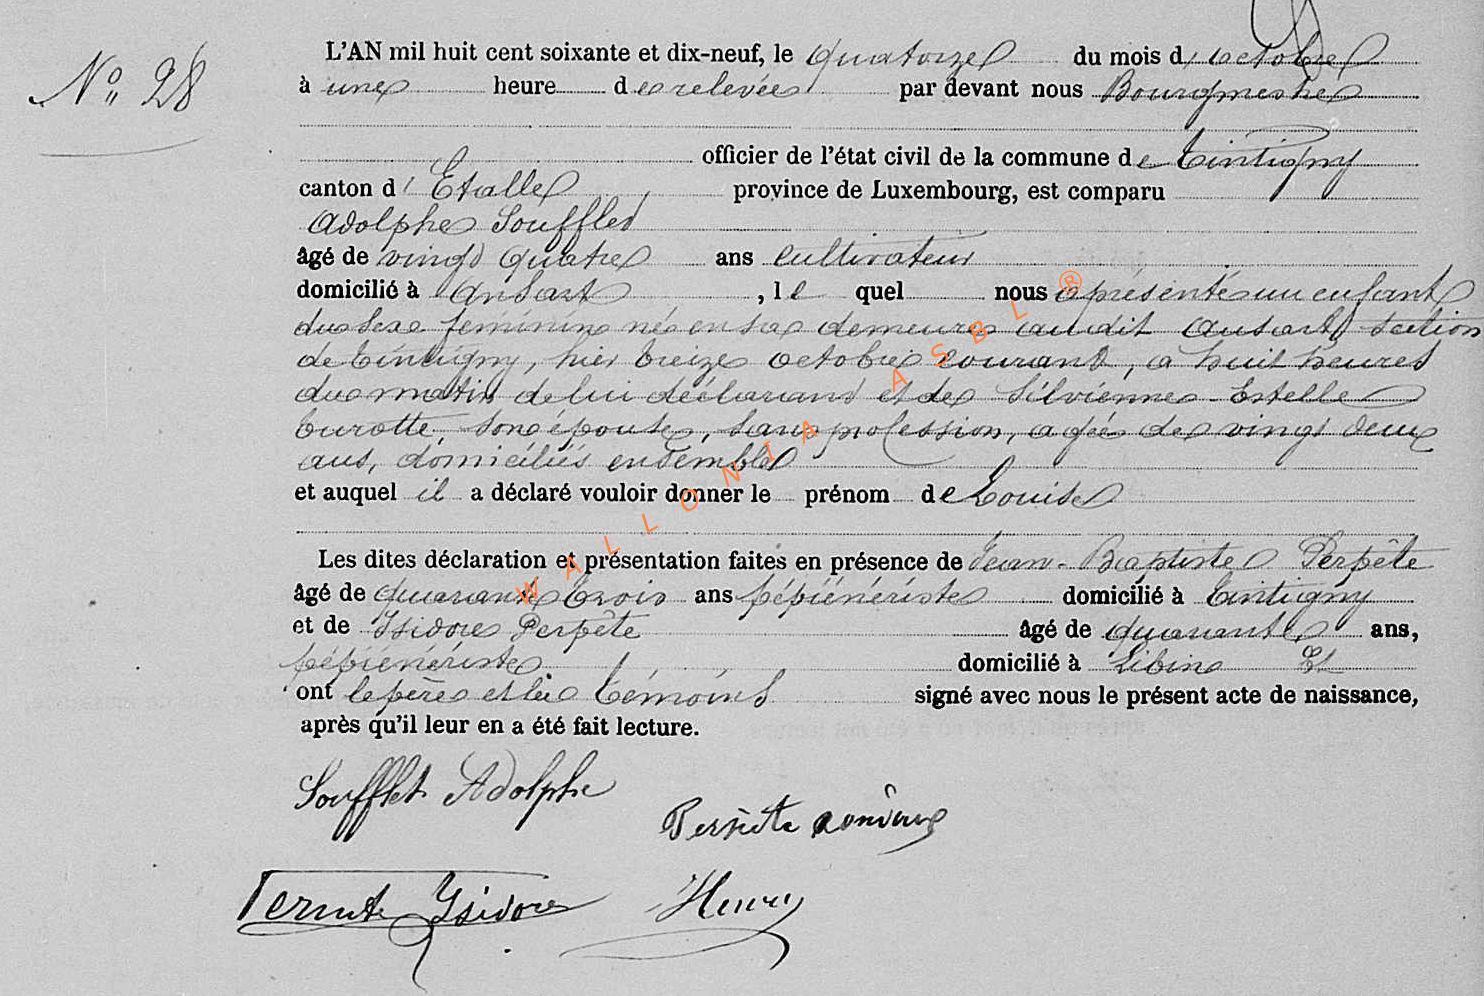 N° 28
L'AN mil huit cent soixante et dix-neuf, le quatorze du mois d'octobre
à une heure de relevée par devant nous Bourgmestre
officier de l'état civil de la commune de Tintigny
canton d'Etalle province de Luxembourg, est comparu
Adolphe Soufflet
âgé de vingt quatre ans cultivateur
domicilié à Ansart, lequel nous a présenté un enfant
du sexe féminin né en sa demeure audit Ansart, section
de Tintigny, hier treize octobre courant, à huit heures
du matin de lui déclarant et de Silvienne Estelle
Curotte, son épouse, sans profession, agée de vingt deux
ans, domiciliés ensemble
et auquel il a déclaré vouloir donner le prénom de Louise
Les dites déclaration et présentation faites en présence de Jean-Baptiste Perpète
âgé de quarante trois ans pépiénériste domicilié à Tintigny
et de Isidore Perpète âgé de quarante ans,
pépiénériste domicilié à Libin Et
ont le père et les témoins signé avec nous le présent acte de naissance,
après qu'il leur en a été fait lecture.
Soufflet Adolphe
Isidore
Henry
WALLONIA ASBL ®